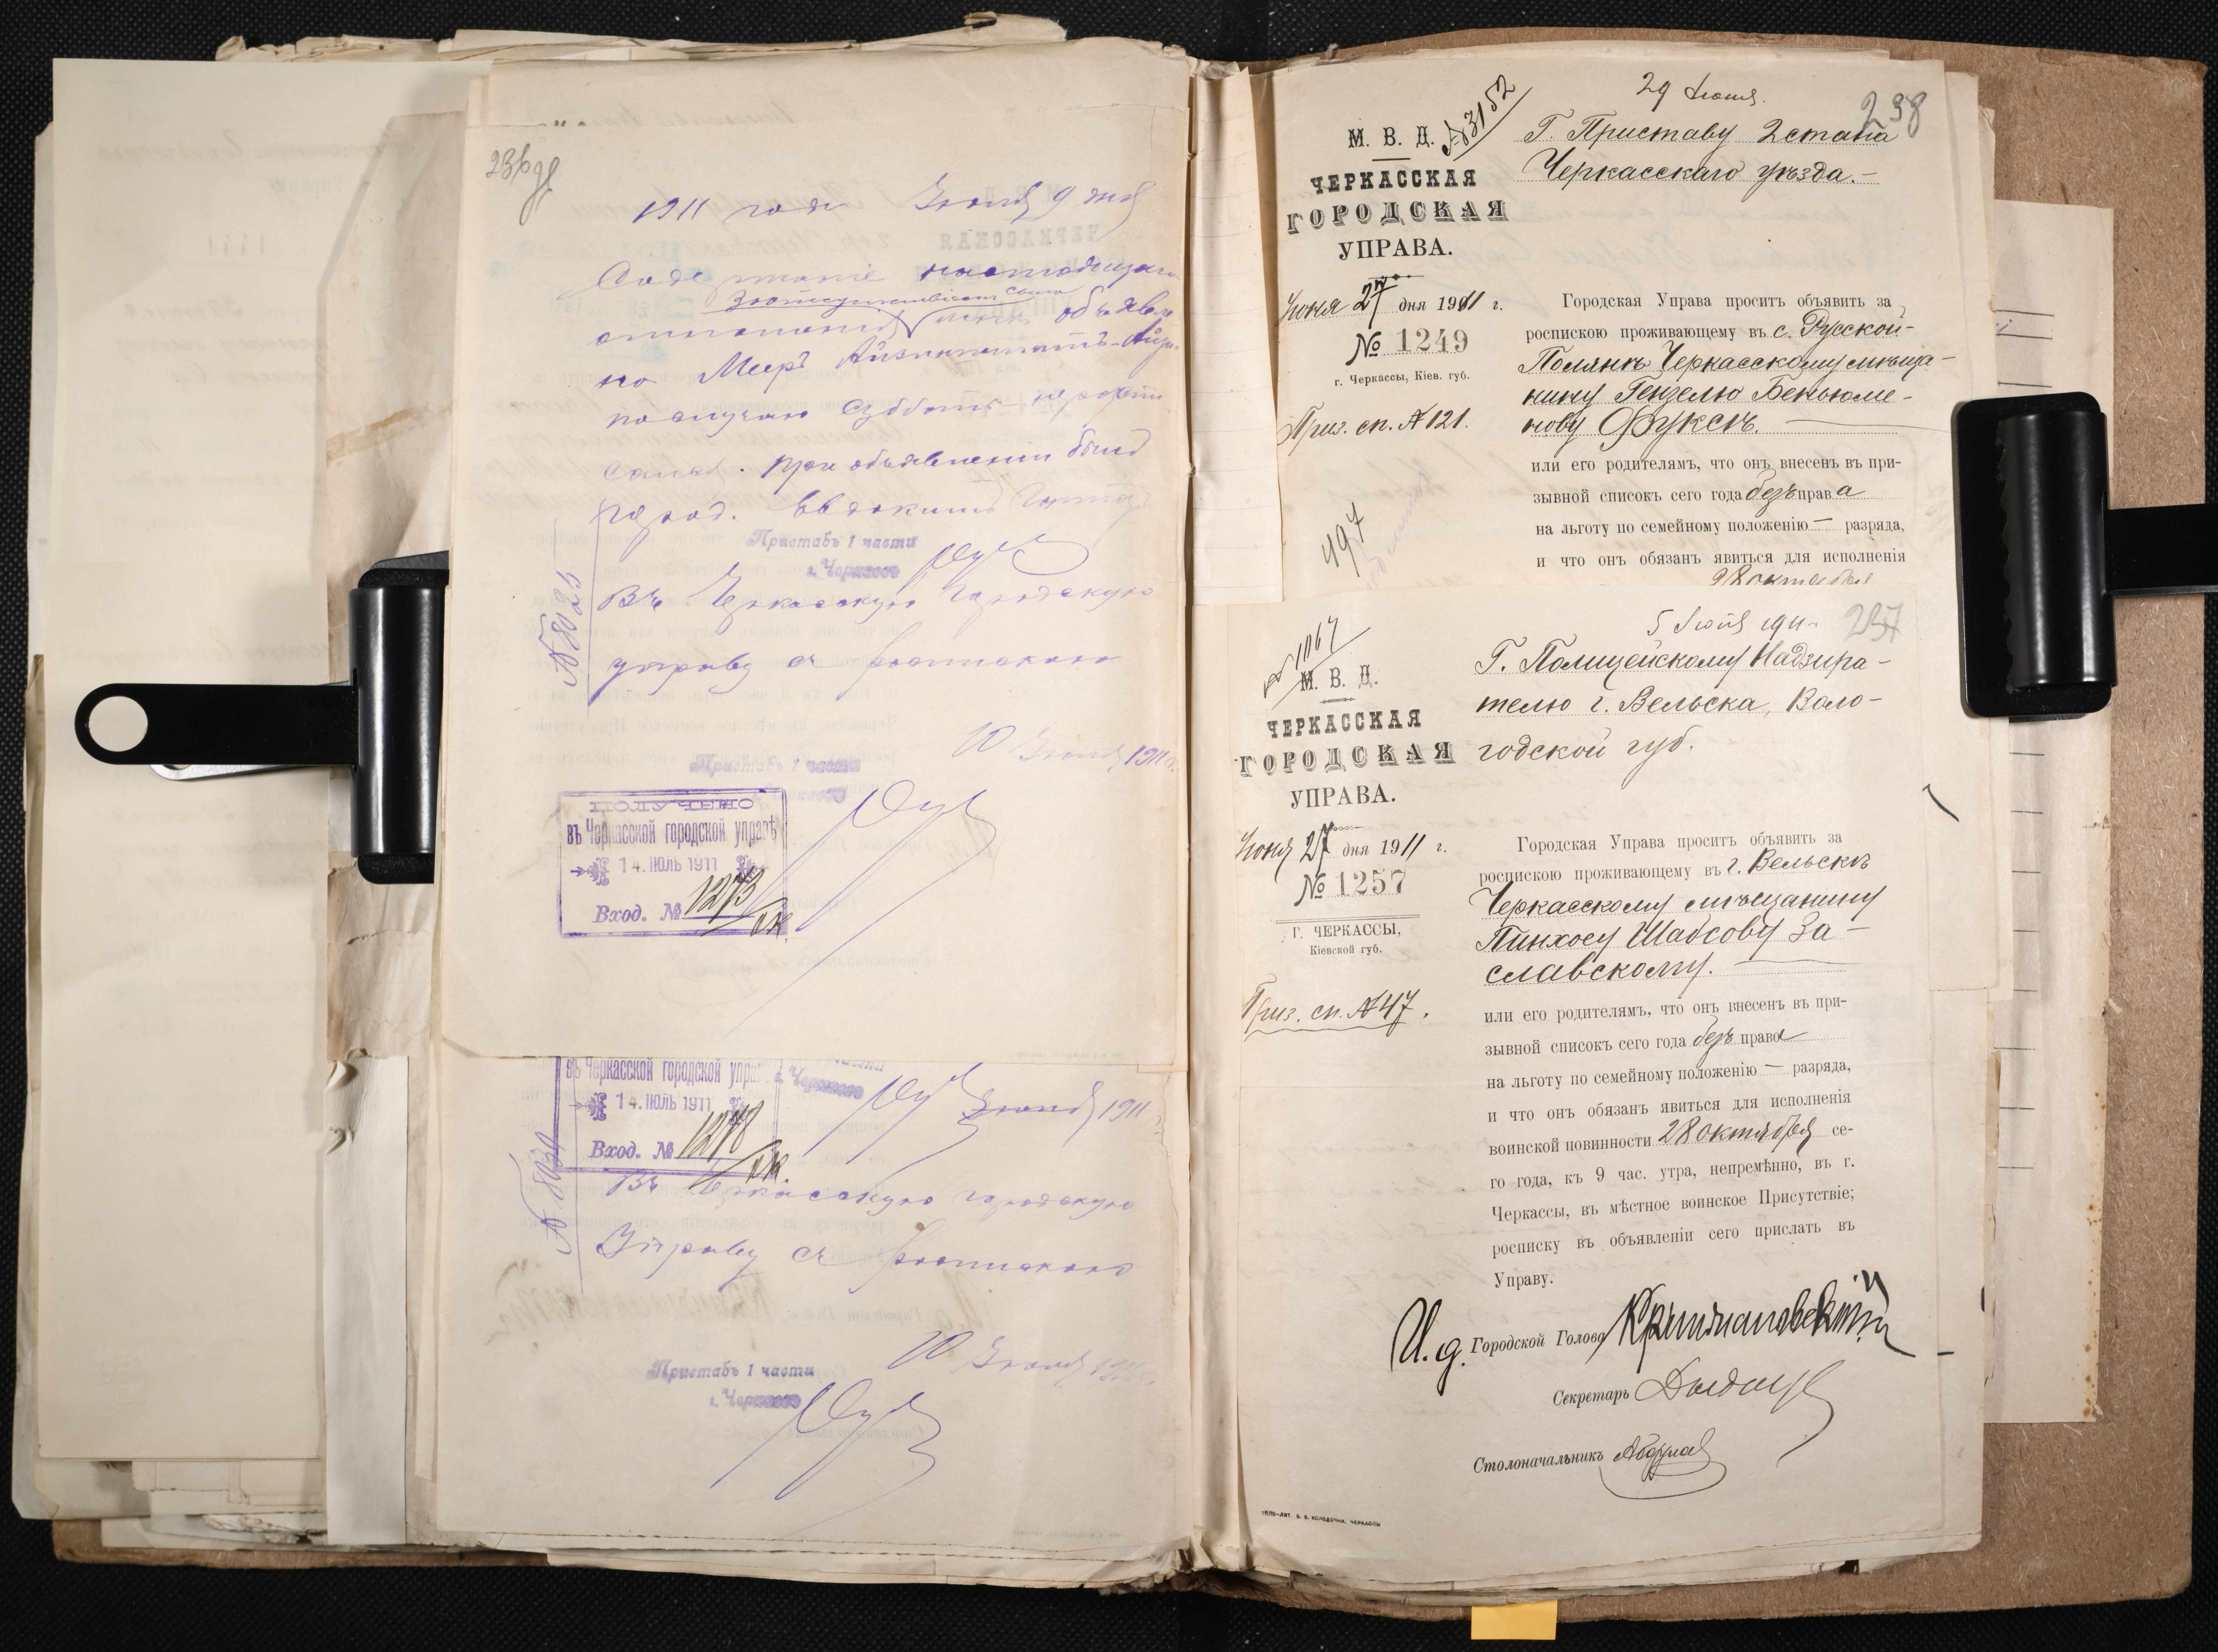 236 об
1911 года Іюля 9 дня
Содержаніе настоящаго
за отсутствіемъ сына
отношенія объявле
но Мееръ
по случаю субботы
При объявленіи былъ
город. Евдокимъ
Приставъ 1 части
г. Черкассъ
№ 8025
Въ Черкасскую Городскую
управу съ роспискою
10 Іюля 1911 г.
Приставъ 1 части
ПОЛУЧЕНО
въ Черкасской городской управѣ
14. ІЮЛЬ 1911
Вход. № 1273
въ Черкасской городской управѣ
14. ІЮЛЬ 1911
Вход. № 1278
г. Черкассъ
Іюля 1911
Въ Черкасскую городскую
Управу съ роспискою
10 Іюля 1911
Приставъ 1 части
г. Черкассъ
29 Іюня.
238
№ 3152
М. В. Д.
ЧЕРКАССКАЯ
ГОРОДСКАЯ
УПРАВА.
Іюня 27 дня 1911 г.
№ 1249
г. Черкассы, Кіев. губ.
Приз. сп. № 121.
497
Г. Приставу 2 стана
Черкасскаго уѣзда.-
Городская Управа проситъ объявить за
роспискою проживающему въ с. Русской-
Полянѣ Черкасскому мѣща-
нину Гензелю Беньюми-
нову Фуксъ.
или его родителямъ, что онъ внесенъ въ при-
зывной списокъ сего года безъ права
на льготу по семейному положенію — разряда,
и что онъ обязанъ явиться для исполненія
28 октября
5 Іюля 1911
237
№ 1067
М. В. Д.
ЧЕРКАССКАЯ
ГОРОДСКАЯ
УПРАВА.
Іюня 27 дня 1911 г.
№ 1257
Г. ЧЕРКАССЫ,
Кіевской губ.
Приз. сп. № 47.
Г. Полицейскому Надзира-
телю г. Вельска, Воло-
годской губ.
Городская Управа проситъ объявить за
роспискою проживающему въ г. Вельскѣ
Черкасскому мѣщанину
Пинхосу Шабсову За-
славскому.
или его родителямъ, что онъ внесенъ въ при-
зывной списокъ сего года безъ права
на льготу по семейному положенію — разряда,
и что онъ обязанъ явиться для исполненія
воинской повинности 28 октября се-
го года, къ 9 час. утра, непремѣнно, въ г.
Черкассы, въ мѣстное воинское Присутствіе;
росписку въ объявленіи сего прислать въ
Управу.
И. д. Городской Голова
Секретарь
Столоначальникъ
ТИПО-ЛИТ. В. В. КОЛОДОЧКИ, ЧЕРКАССЫ